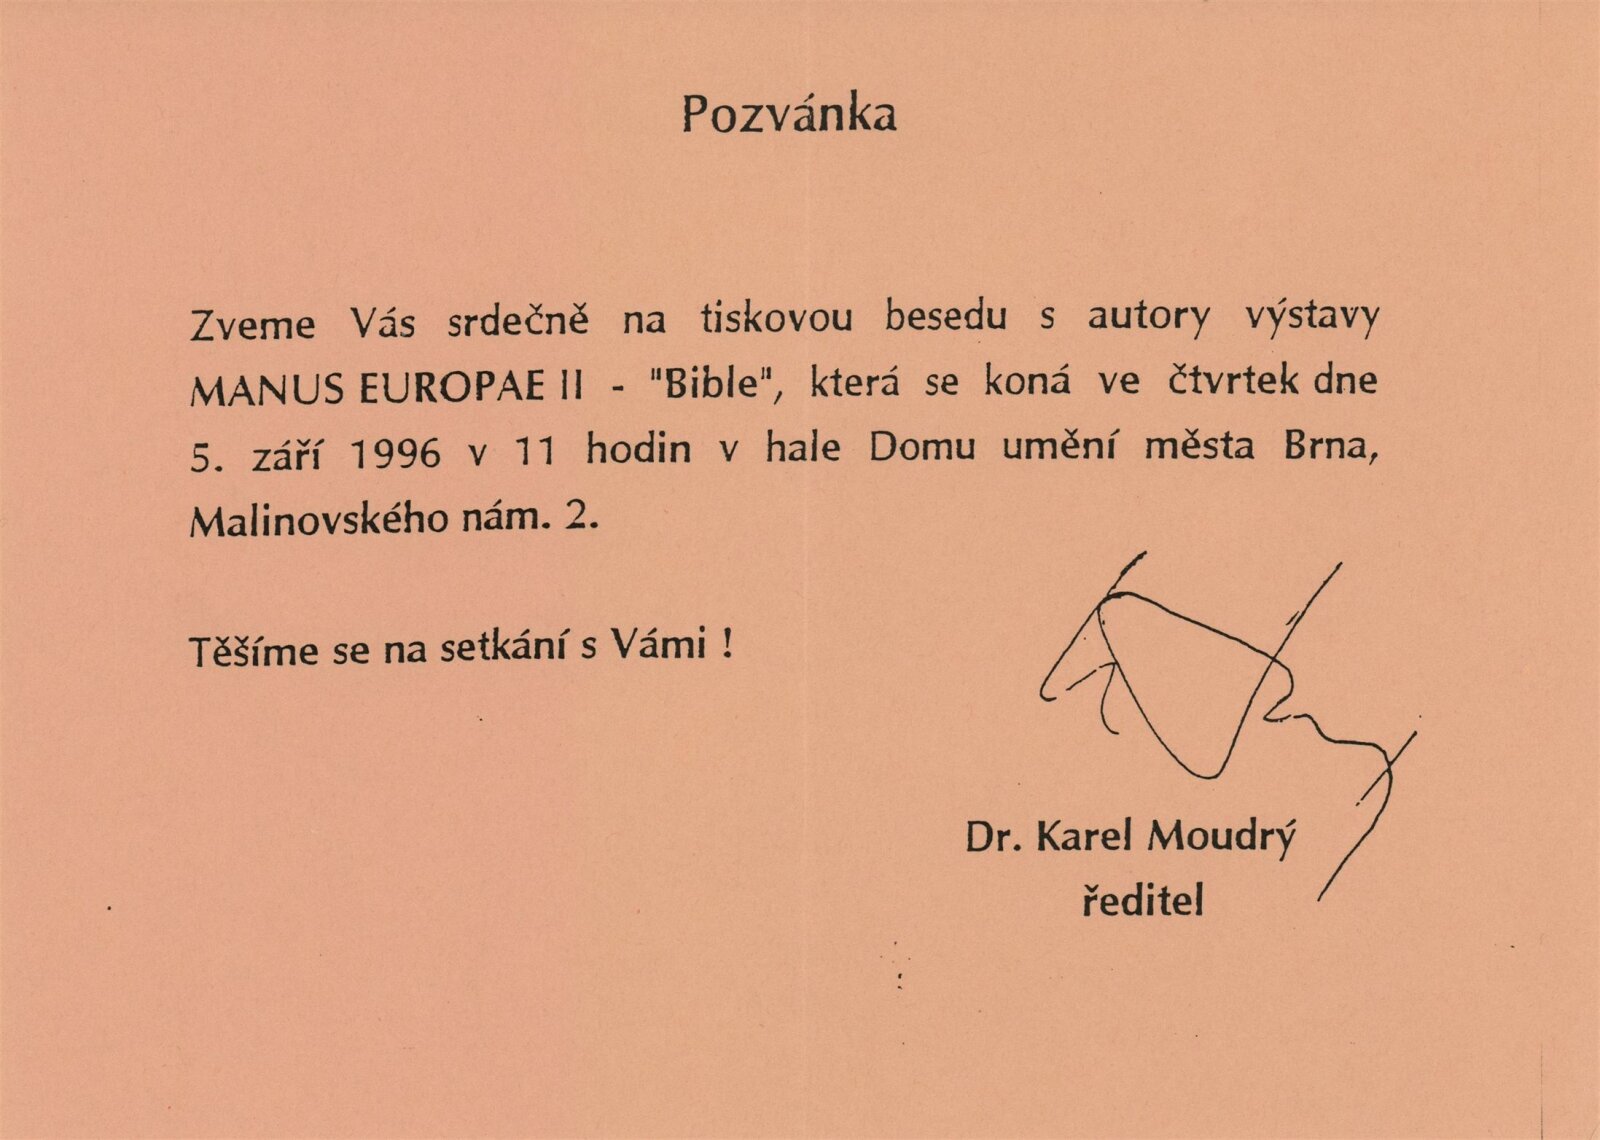 Pozvánka
Zveme Vás srdečně na tiskovou besedu s autory výstavy
MANUS EUROPAE II - "Bible", která se koná ve čtvrtek dne
5. září 1996 v 11 hodin v hale Domu umění města Brna,
Malinovského nám. 2.
Těšíme se na setkání s Vámi !
Dr. Karel Moudrý
ředitel